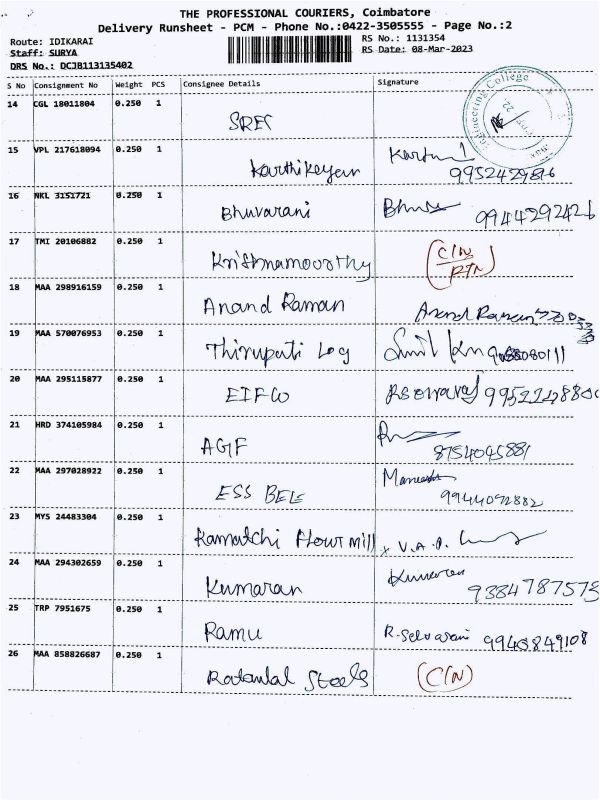 THE PROFESSIONAL COURIERS, Coimbatore
Delivery Runsheet - PCM - Phone No.:0422-3505555 - Page No.:2
Route: IDIKARAI
Staff: SURYA
DRS No.: DCJB113135402
RS No.: 1131354
RS Date: 08-Mar-2023
S No Consignment No Weight PCS Consignee Details Signature
14 CGL 18011804 0.250 1
SREC
Engineering College
15 VPL 217618094 0.250 1
Karthikeyan
16 NKL 3151721 0.250 1
Bhuvarani 9944292426
17 TMI 20106882 0.250 1
Krishnamoorthy C/N
RTN
18 MAA 298916159 0.250 1
Anand Raman Anand Raman
19 MAA 570076953 0.250 1
Thirupati Log
20 MAA 295115877 0.250 1
EIFCO
21 HRD 374105984 0.250 1
AGIF 8754045881
22 MAA 297028922 0.250 1
ESS BEE 9944092882
23 MYS 24483304 0.250 1
Kamatchi Flour mill x V.A.P.
24 MAA 294302659 0.250 1
Kumaran Kumaran 9384787573
25 TRP 7951675 0.250 1
Ramu R. Selvarani 9940849108
26 MAA 858826687 0.250 1
Ratanlal Steels C/N